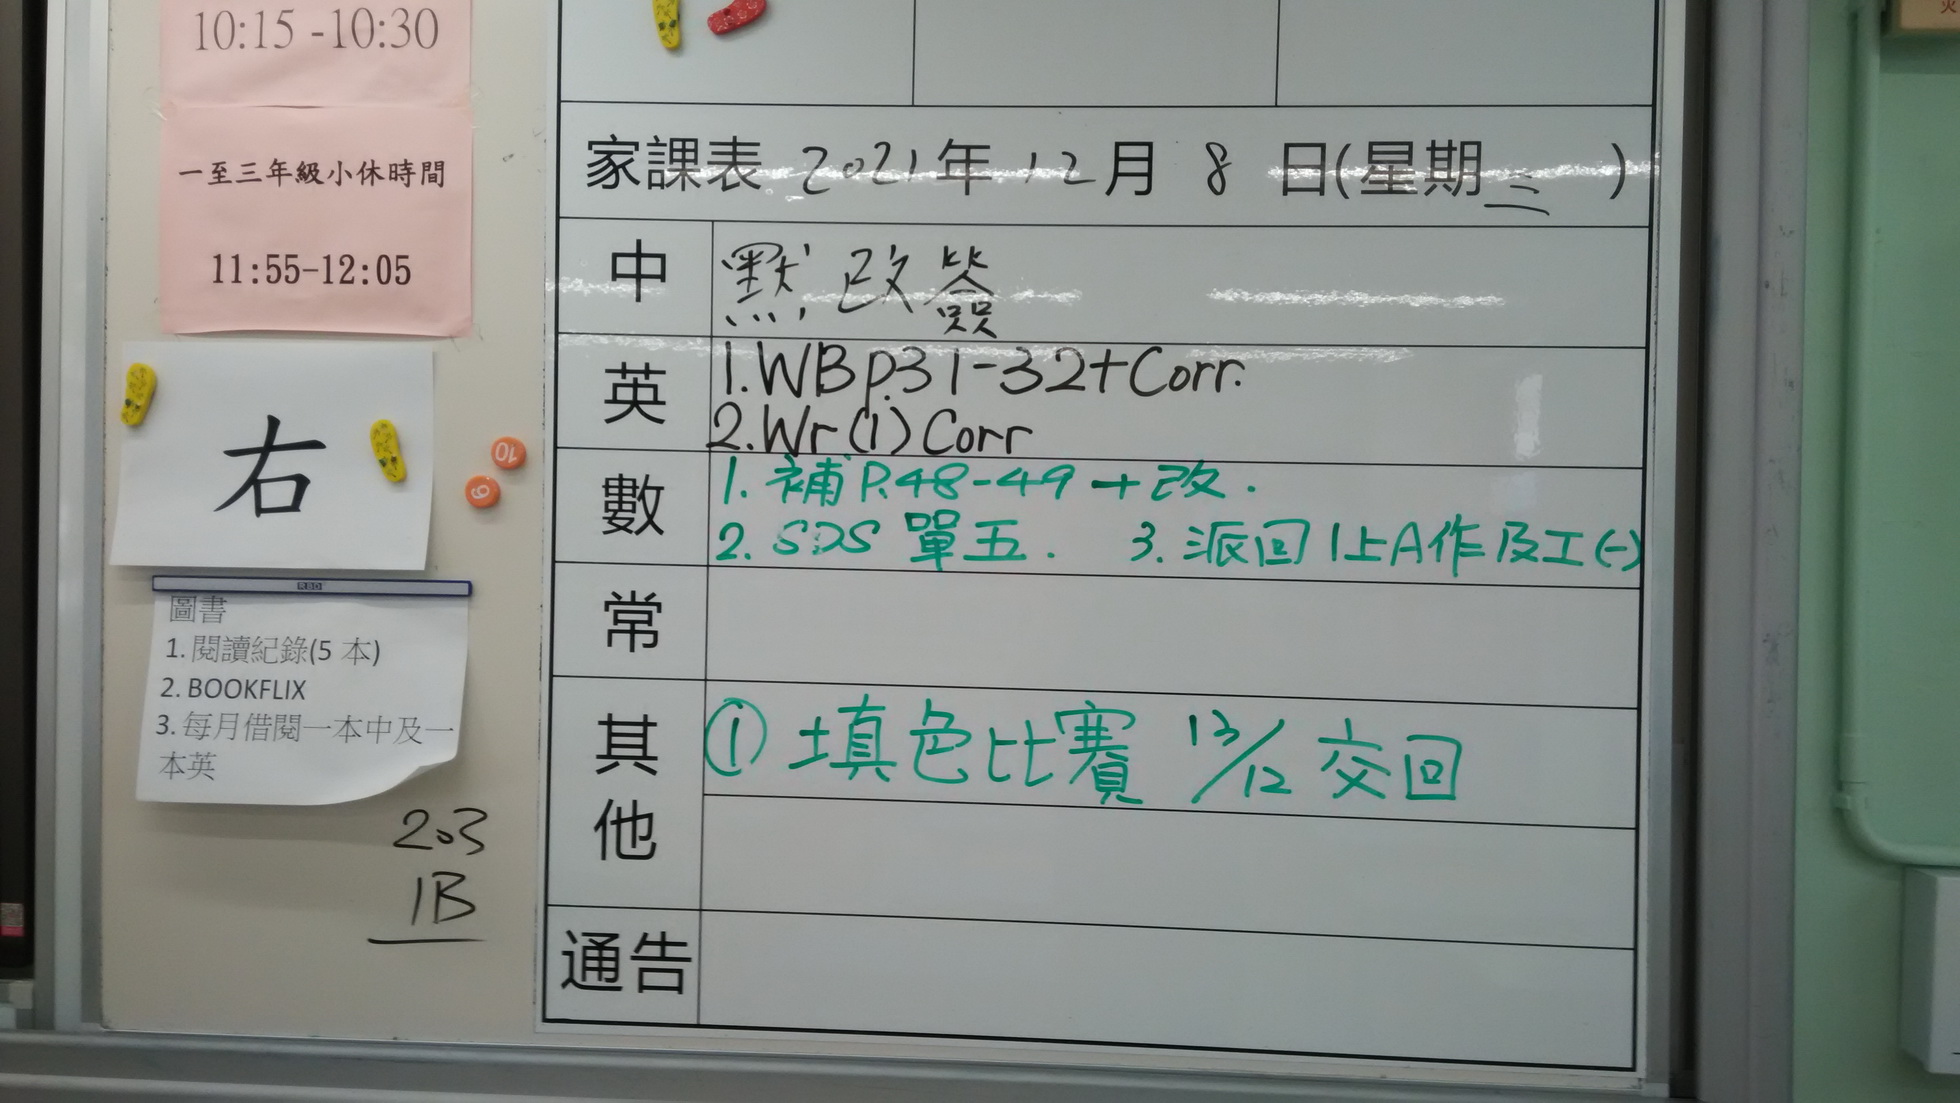 10:15 -10:30
一至三年級小休時間
11:55-12:05
右
10
9
圖書
1. 閱讀紀錄(5 本)
2. BOOKFLIX
3. 每月借閱一本中及一
本英
203
1B
家課表 2021年 12月 8 日(星期三)
中
默,改簽
英
1.WBp.31-32+Corr.
2.Wr(1) Corr
數
1. 補P.48-49+改.
2. SDS 單五. 3. 派回1上A作及工(一)
常
其他
① 填色比賽 13/12 交回
通告
火